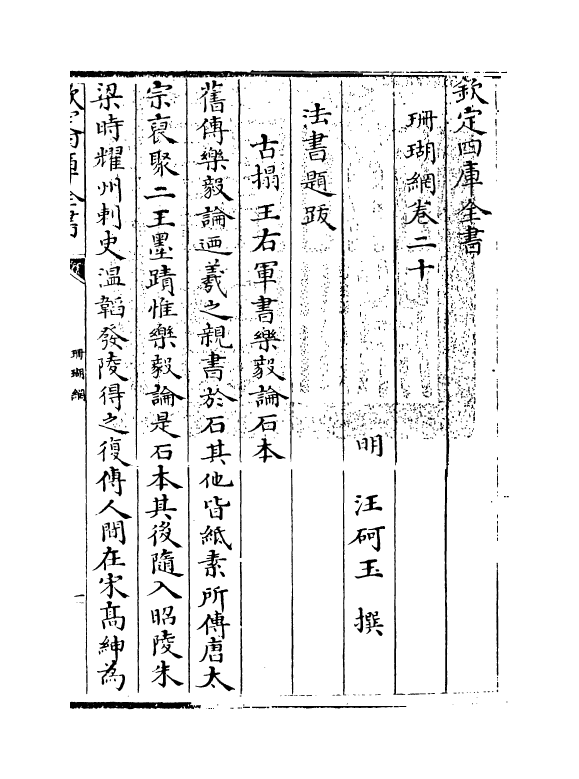 欽定四庫全書
珊瑚網卷二十
明 汪砢玉 撰
法書題跋
古搨王右軍書樂毅論石本
舊傳樂毅論廼羲之親書於石其他皆紙素所傳唐太
宗裒聚二王墨蹟惟樂毅論是石本其後隨入昭陵朱
梁時耀州刺史温韜發陵得之復傳人間在宋髙紳為
欽定四庫全書
珊瑚網
一